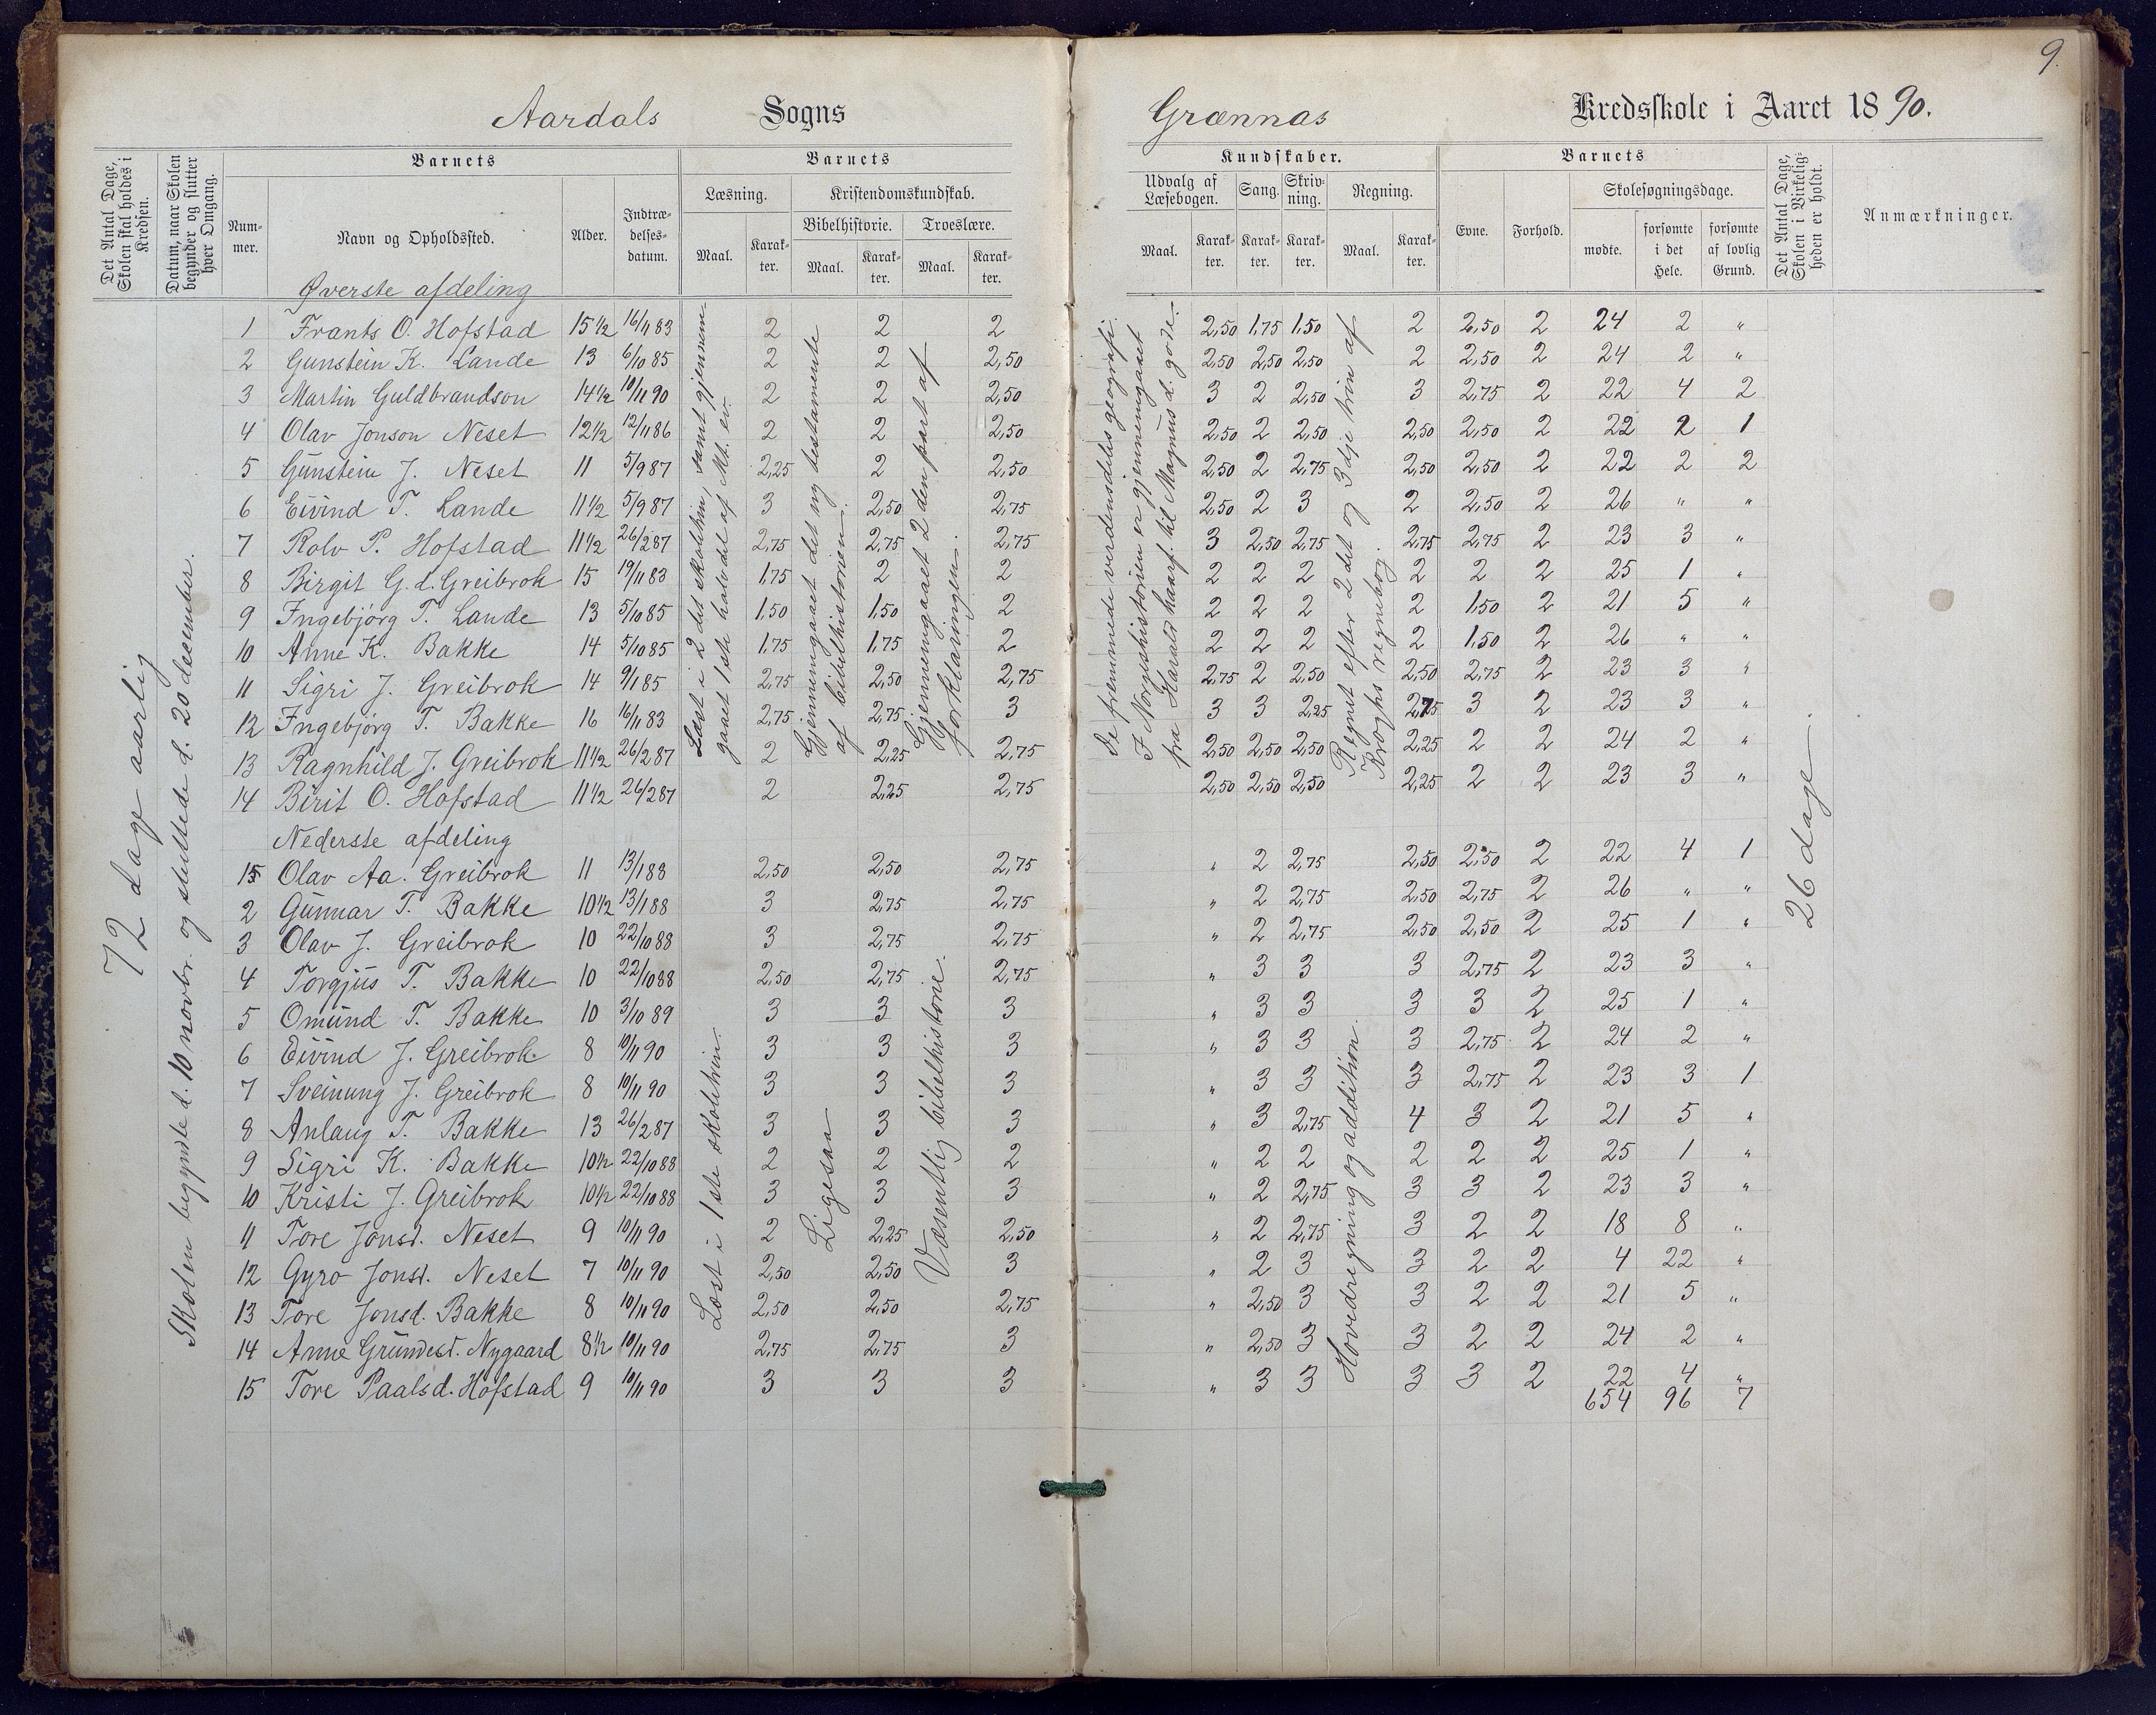 9.
Aardals Sogns Grænnas Kredsskole i Aaret 1890.
Det Antal Dage, Skolen skal holdes i Kredsen.
Datum, naar Skolen begynder og slutter hver Omgang.
Barnets
Num-mer. Navn og Opholdssted. Alder. Indtræ-delses-datum.
Barnets Kundskaber.
Læsning. Kristendomskundskab. Udvalg af Læsebogen. Sang. Skriv-ning. Regning.
Bibelhistorie. Troeslære.
Maal. Karak-ter. Maal. Karak-ter. Maal. Karak-ter. Maal. Karak-ter. Karak-ter. Karak-ter. Maal. Karak-ter.
Barnets
Evne. Forhold. Skolesøgningsdage.
mødte. forsømte i det Hele. forsømte af lovlig Grund.
Det Antal Dage, Skolen i Virkelig-heden er holdt.
Anmærkninger.
72 dage aarlig
Skolen begyndte d. 10 novbr. og sluttede d. 20 december.
Øverste afdeling
1 Frants O. Hofstad 15 1/2 16/11 83 2 2 2 2,50 1,75 1,50 2 2,50 2 24 2 "
2 Gunstein K. Lande 13 6/10 85 2 2 2,50 2,50 2,50 2,50 2 2,50 2 24 2 "
3 Martin Guldbrandson 14 1/2 10/11 90 2 2 2,50 3 2 2,50 3 2,75 2 22 4 2
4 Olav Jonson Neset 12 1/2 12/11 86 2 2 2,50 2,50 2 2,50 2,50 2,50 2 22 2 1
5 Gunstein J. Neset 11 5/9 87 2,25 2 2,50 2,50 2 2,75 2,50 2,50 2 22 2 2
6 Eivind T. Lande 11 1/2 5/9 87 3 2,50 2,75 2,50 2 3 2 2,50 2 26 " "
7 Rolv P. Hofstad 11 1/2 26/2 87 2,75 2,75 2,75 3 2,50 2,75 2,75 2,75 2 23 3 "
8 Birgit G. d. Greibrok 15 19/11 83 1,75 2 2 2 2 2 2 2 2 25 1 "
9 Ingebjörg T. Lande 13 5/10 85 1,50 1,50 2 2 2 2 2 1,50 2 21 5 "
10 Anne K. Bakke 14 5/10 85 1,75 1,75 2 2 2 2 2 1,50 2 26 " "
11 Sigri J. Greibrok 14 9/1 85 2,75 2,50 2,75 2,75 2 2,50 2,50 2,75 2 23 3 "
12 Ingebjörg T. Bakke 16 16/11 83 2,75 2,75 3 3 3 2,25 2,75 3 2 23 3 "
13 Ragnhild J. Greibrok 11 1/2 26/2 87 2 2,25 2,75 2,50 2,50 2,50 2,25 2 2 24 2 "
14 Birit O. Hofstad 11 1/2 26/2 87 2 2,25 2,75 2,50 2,50 2,50 2,25 2 2 23 3 "
Læst i 2 det skoletrin, samt gjennem
gaaet 1ste halvdel af Mt. ev.
Gjennemgaaet det ny testamente
af bibelhistorien.
Gjennemgaaet 2 den part af
forklaringen.
De fremmede verdensdeles geografi.
I Norgeshistorien er gjennemgaaet
fra Harald haarf. til Magnus d. gode.
Regnet efter 2 det og 3 dje trin af
Kroghs regnebog.
Nederste afdeling
1 Olav Aa. Greibrok 11 13/1 88 2,50 2,50 2,75 " 2 2,75 2,50 2,50 2 22 4 1
2 Gunnar T. Bakke 10 1/2 13/1 88 3 2,75 2,75 " 2 2,75 2,50 2,75 2 26 " "
3 Olav J. Greibrok 10 22/10 88 3 2,75 2,75 " 2 2,75 2,50 2,50 2 25 1 "
4 Torgjus T. Bakke 10 22/10 88 2,50 2,75 2,75 " 3 3 3 2,75 2 23 3 "
5 Omund T. Bakke 10 3/10 89 3 3 3 " 3 3 3 3 2 25 1 "
6 Eivind J. Greibrok 8 10/11 90 3 3 3 " 3 3 3 2,75 2 24 2 "
7 Sveinung J. Greibrok 8 10/11 90 3 3 3 " 3 3 3 2,75 2 23 3 1
8 Anlaug T. Bakke 13 26/2 87 3 3 3 " 3 2,75 4 3 2 21 5 "
9 Sigri K. Bakke 10 1/2 22/10 88 2 2 2 " 2 2 2 2 2 25 1 "
10 Kristi J. Greibrok 10 1/2 22/10 88 3 3 3 " 2 2,75 3 3 2 23 3 "
11 Tore Jonsd. Neset 9 10/11 90 2 2,25 2,50 " 2 2,75 3 2 2 18 8 "
12 Gyro Jonsd. Neset 7 10/11 90 2,50 2,50 3 " 2 3 3 2 2 4 22 "
13 Tore Jonsd. Bakke 8 10/11 90 2,50 2,50 2,75 " 2,50 3 3 2 2 21 5 "
14 Anne Grundesd. Nygaard 8 1/2 10/11 90 2,75 2,75 3 " 2,50 3 3 2 2 24 2 "
15 Tore Paalsd. Hofstad 9 10/11 90 3 3 3 " 3 3 3 3 2 22 4 "
654 96 7
Læst i 1 ste skoletrin.
Ligesaa
Væsentlig bibelhistorie.
Hovedregning og addition.
26 dage.